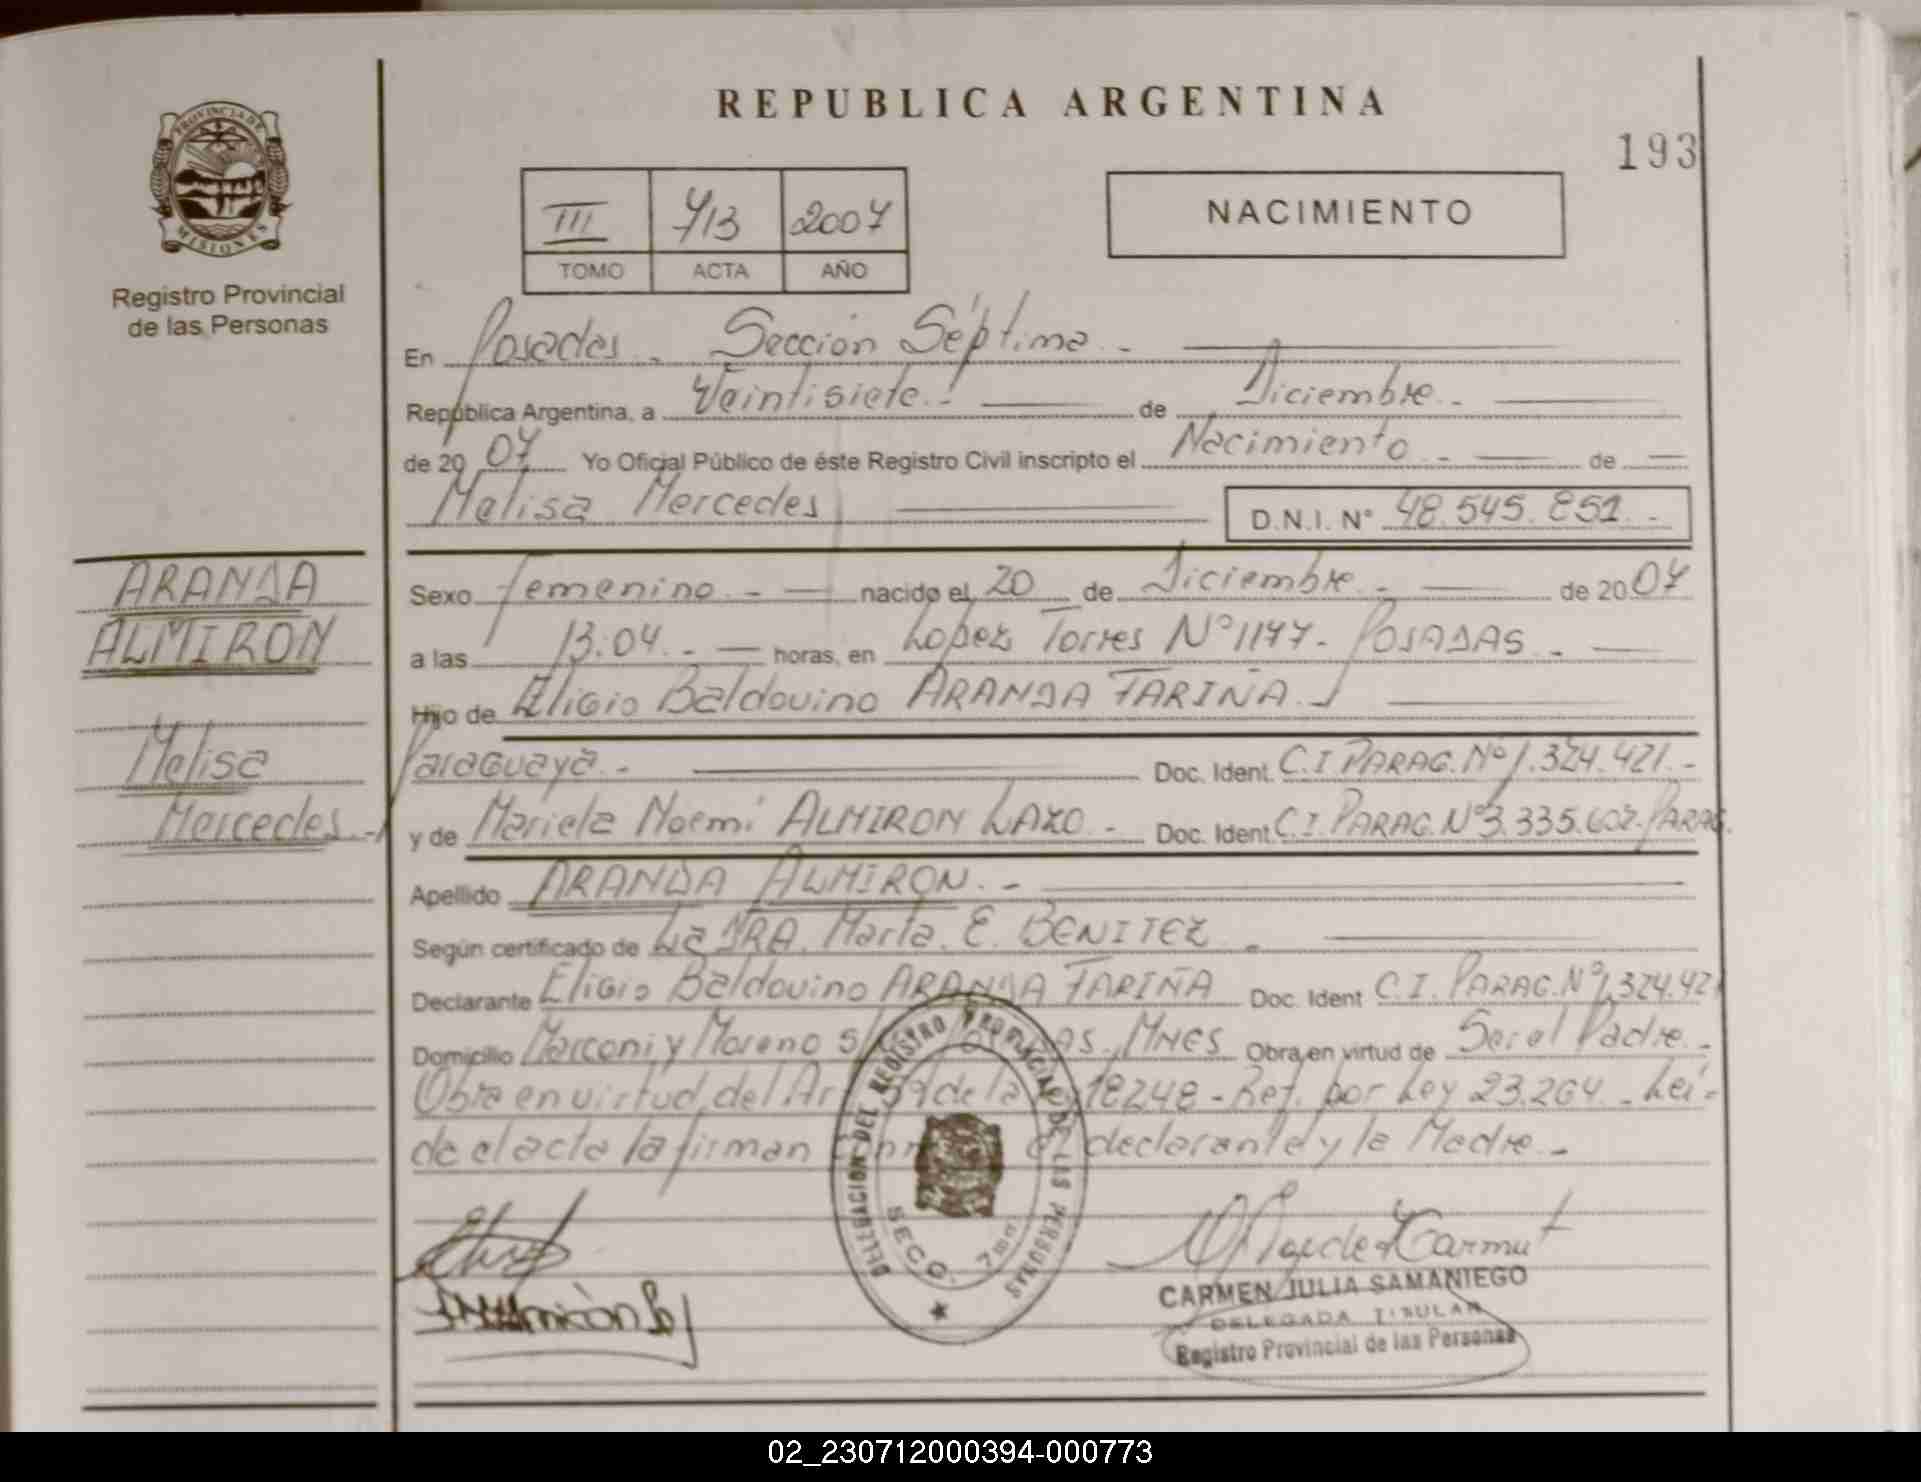 PROVINCIA DE
MISIONES
Registro Provincial
de las Personas
REPUBLICA ARGENTINA
193
III 713 2007
TOMO ACTA AÑO
NACIMIENTO
En Posadas - Sección Séptima -
República Argentina, a Veintisiete.- de Diciembre.-
de 2007 Yo Oficial Público de éste Registro Civil inscripto el Nacimiento - de
Melisa Mercedes D.N.I. N° 48.545.851.-
ARANDA
ALMIRON
Melisa
Mercedes.-
Sexo femenino.- nacido el 20 de Diciembre.- de 2007
a las 13:04.- horas, en Lopez Torres N°1177- POSADAS.-
Hijo de Eligio Baldovino ARANDA FARIÑA.-
Paraguaya.- Doc. Ident. C.I PARAG. N°1.324.421.-
y de Mariela Noemí ALMIRON LAZO.- Doc. Ident. C.I. PARAG. N°3.335.602-PARAG.
Apellido ARANDA ALMIRON.-
Según certificado de La DRA. Marta. E. BENITEZ -
Declarante Eligio Baldovino ARANDA FARIÑA Doc. Ident C.I. PARAG. N°1.324.42
Domicilio Marconi y Moreno MNES Obra en virtud de Ser el Padre.-
Obra en virtud del Ar de la 18248 - Ref. por Ley 23.264.- Leí-
da el acta la firman declarante y la Madre.-
DELEGACION DEL REGISTRO PROVINCIAL DE LAS PERSONAS
SECC. 7ma
CARMEN JULIA SAMANIEGO
DELEGADA TITULAR
Registro Provincial de las Personas
02_230712000394-000773